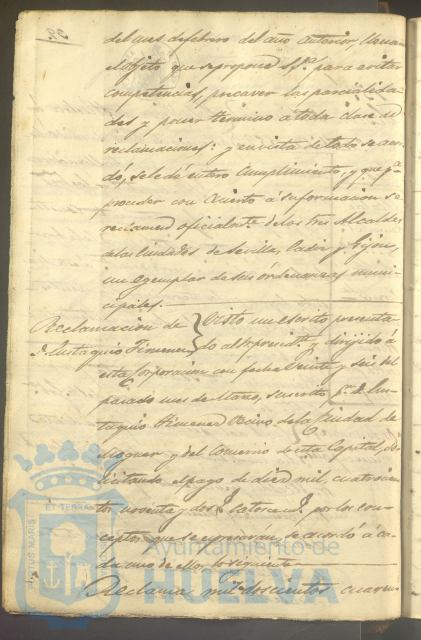 del mes de febrero del año anterior, llenan
el objeto que se propone S.S.ª para evitar
competencias, precaver las parcialida-
des y poner termino a toda clase de
reclamaciones: y en vista de todo se acor-
dó, se le de entero cumplimiento, y que p.ª
proceder con acierto á su formacion se
reclamen oficialm.te de los tres Alcaldes
de las Ciudades de Sevilla, Cadiz y Gijon,
un egemplar de sus ordenanzas muni-
cipales.
Reclamacion de
D. Eustaquio Ximenez
Visto un escrito presenta-
do al Sr. presid.te y dirijido á
esta Corporacion con fecha veinte y seis del
pasado mes de Marzo, suscrito p.r D. Eus-
taquio Ximenez vecino de la Ciudad de
Moguer y del Comercio de esta Capital, so-
licitando el pago de diez mil, cuatrocien-
tos noventa y dos r.s catorce m.s por los con-
ceptos que se espresarán, se acordó á ca-
da uno de ellos lo siguiente.
Reclama mil doscientos cuaren-
PORTUS MARIS
ET TERRAE
Ayuntamiento de
HUELVA